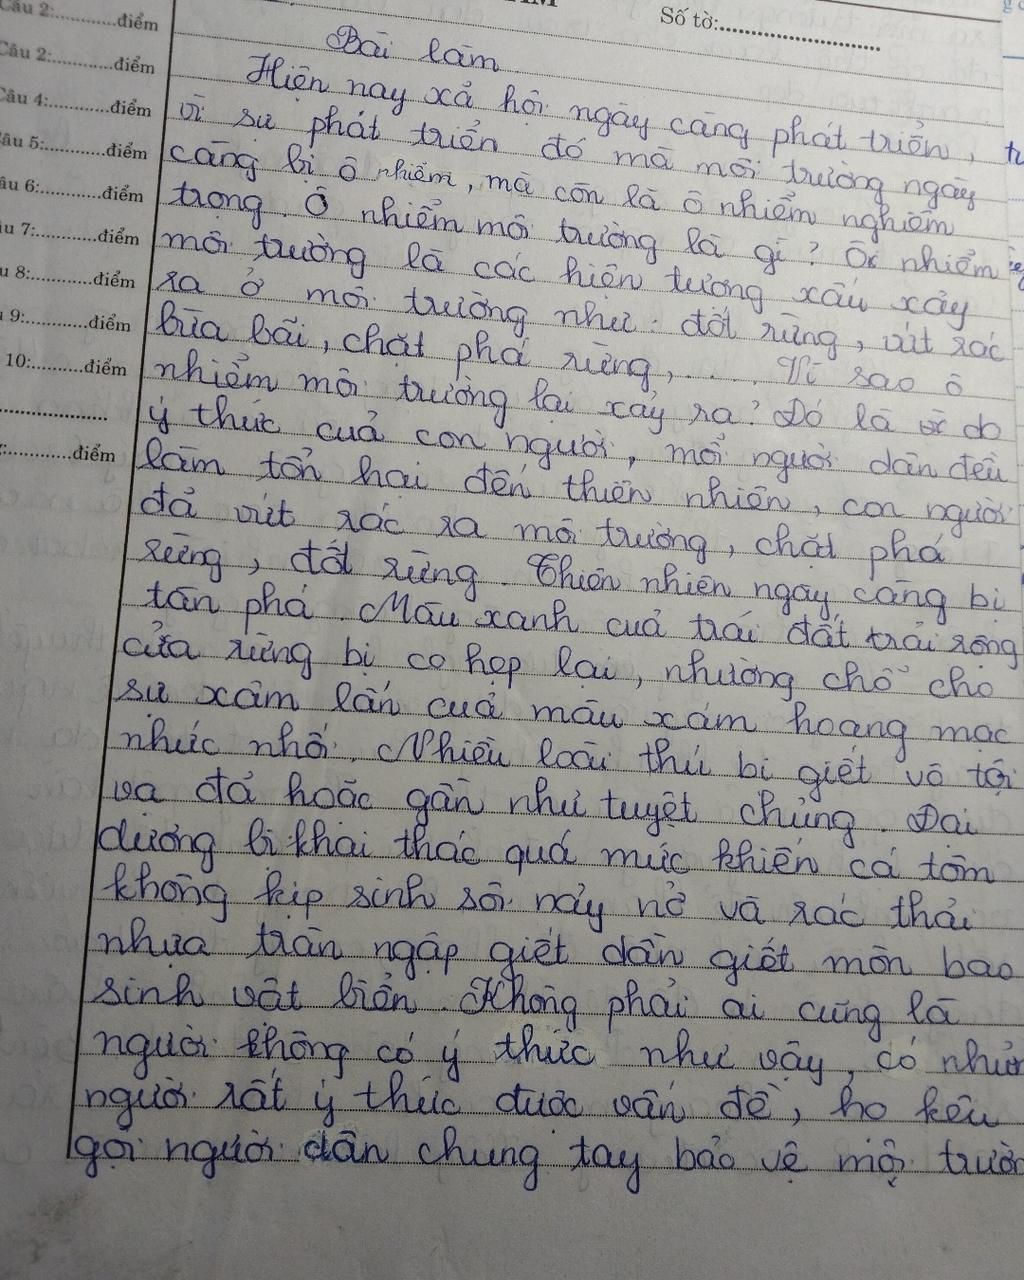 Số tờ:
Câu 2:............điểm
Câu 2:............điểm
Câu 4:............điểm
âu 5:............điểm
âu 6:............điểm
u 7:............điểm
u 8:............điểm
9:............điểm
10:............điểm
............điểm
Bài làm
Hiện nay xả hội ngày càng phát triển,
vì sự phát triển đó mà môi trường ngày
càng bị ô nhiễm, mà còn là ô nhiểm nghiêm
trọng. Ô nhiểm môi trường là gì? Ô nhiểm
môi trường là các hiện tượng xấu xảy
ra ở môi trường như: đốt rừng, vứt rác
bừa bãi, chặt phá rừng,..... Vì sao ô
nhiểm môi trường lại xảy ra? Đó là do
ý thức cuả con người, mổi người dân đều
làm tổn hại đến thiên nhiên, con người
đả vứt rác ra môi trường, chặt phá
rừng, đốt rừng. Thiên nhiên ngày càng bị
tàn phá. Màu xanh cuả trái đất trải rộng
của rừng bị co hẹp lại, nhường chổ cho
sự xâm lấn cuả màu xám hoang mạc
nhức nhối. Nhiều loài thú bị giết vô tội
va đả hoặc gần như tuyệt chủng. Đại
dương bị khai thác quá mức khiến cá tôm
không kịp sinh sôi nảy nở và rác thải
nhựa tràn ngập giết dần giết mòn bao
sinh vật biển. Không phải ai cũng là
người không có ý thức như vậy, có nhữn
người rất ý thức được vấn đề, họ kêu
gọi người dân chung tay bảo vệ môi trườn